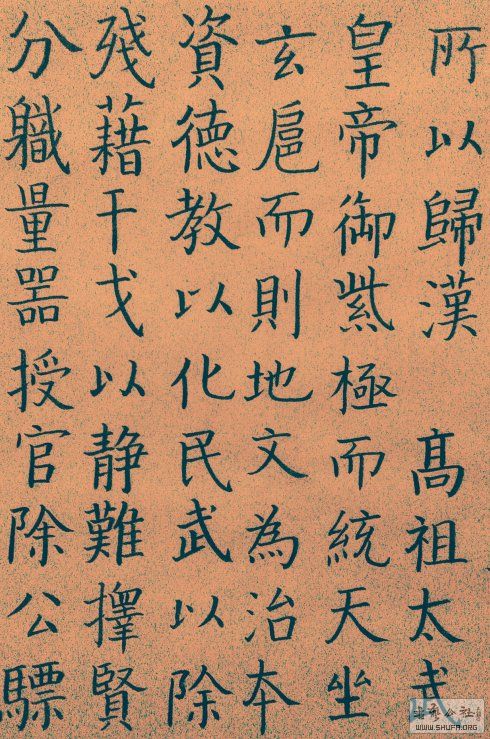 所以歸漢 髙祖太武
皇帝御紫極而統天坐
玄扈而則地文為治本
資德教以化民武以除
殘藉干戈以静難擇賢
分職量器授官除公驃
公社
WWW.SHUFA.ORG